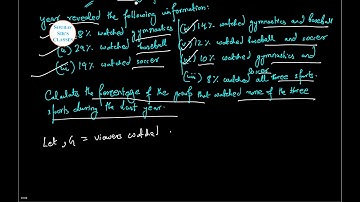 year revealed the following information:
8% watched gymnastics
(ii) 29% watched baseball
(iii) 19% watched soccer
14% watched gymnastics and baseball
12% watched baseball and soccer
10% watched gymnastics and
soccer
(vii) 8% watched all three sports.
Calculate the percentage of the that watched none of the three
sports during the last year.
Let, G = viewers watched